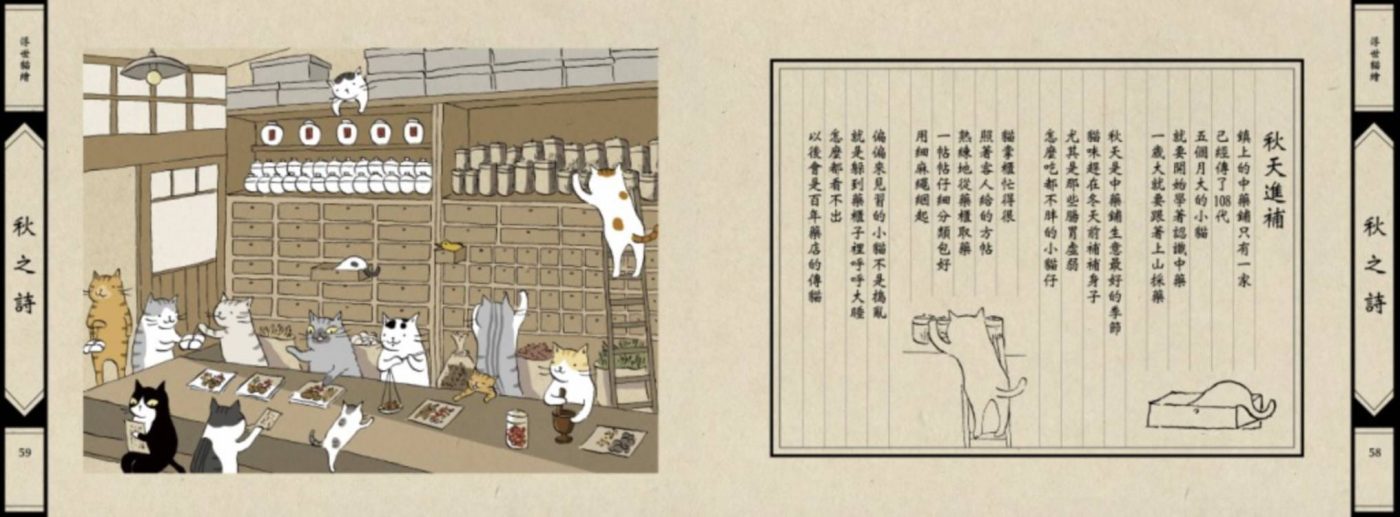 浮世貓繪
秋之詩
58
秋天進補
鎮上的中藥鋪只有一家
已經傳了108代
五個月大的小貓
就要開始學著認識中藥
一歲大就要跟著上山採藥
秋天是中藥鋪生意最好的季節
貓咪趕在冬天前補補身子
尤其是那些腸胃虛弱
怎麼吃都不胖的小貓仔
貓掌櫃忙得很
照著客人給的方帖
熟練地從藥櫃取藥
一帖帖仔細分類包好
用細麻繩綑起
偏偏來見習的小貓不是搗亂
就是躲到藥櫃子裡呼呼大睡
怎麼都看不出
以後會是百年藥店的傳貓
浮世貓繪
秋之詩
59